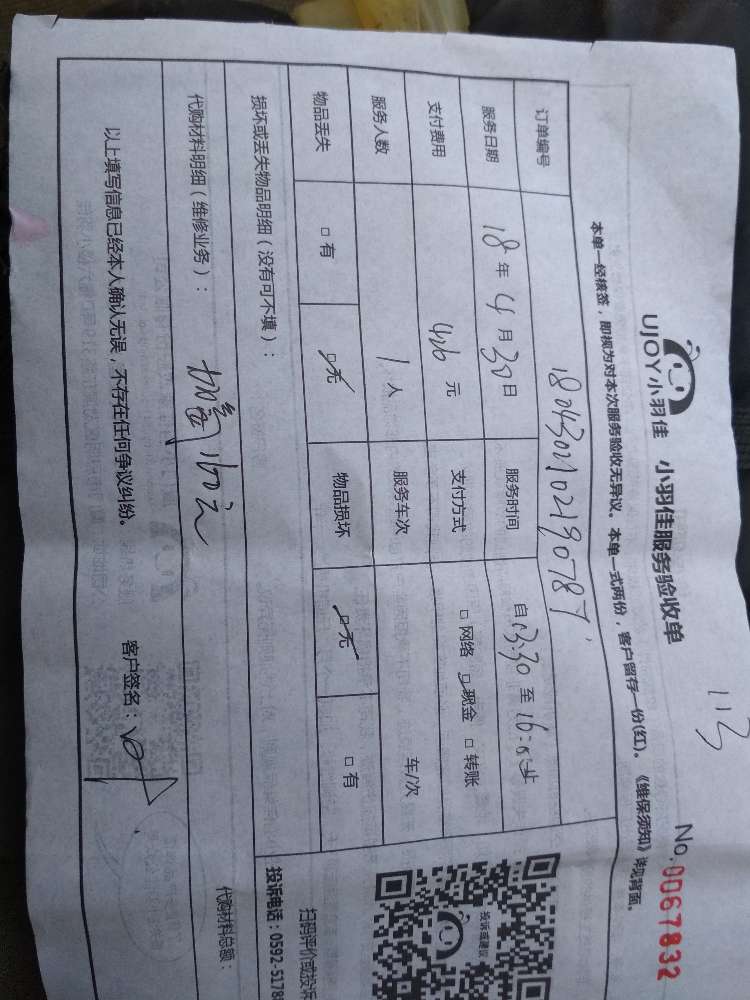 113
UJOY小羽佳 小羽佳服务验收单
No.0067832
本单一经核签，即视为对本次服务验收无异议。本单一式两份，客户留存一份(红)。《维保须知》详见背面。
订单编号 180430210219078T
服务日期 18年4月30日 服务时间 自13:30至
支付费用 426元 支付方式 □网络 □现金 □转账
服务人数 1人 服务车次 车/次
物品丢失 □有 □无 物品损坏 □无 □有
损坏或丢失物品明细（没有可不填）：
代购材料明细（维修业务）： 加氟160元
代购材料总额：
以上填写信息已经本人确认无误，不存在任何争议纠纷。 客户签名：
投诉或建议
扫码评价或投诉
投诉电话：0592-5178